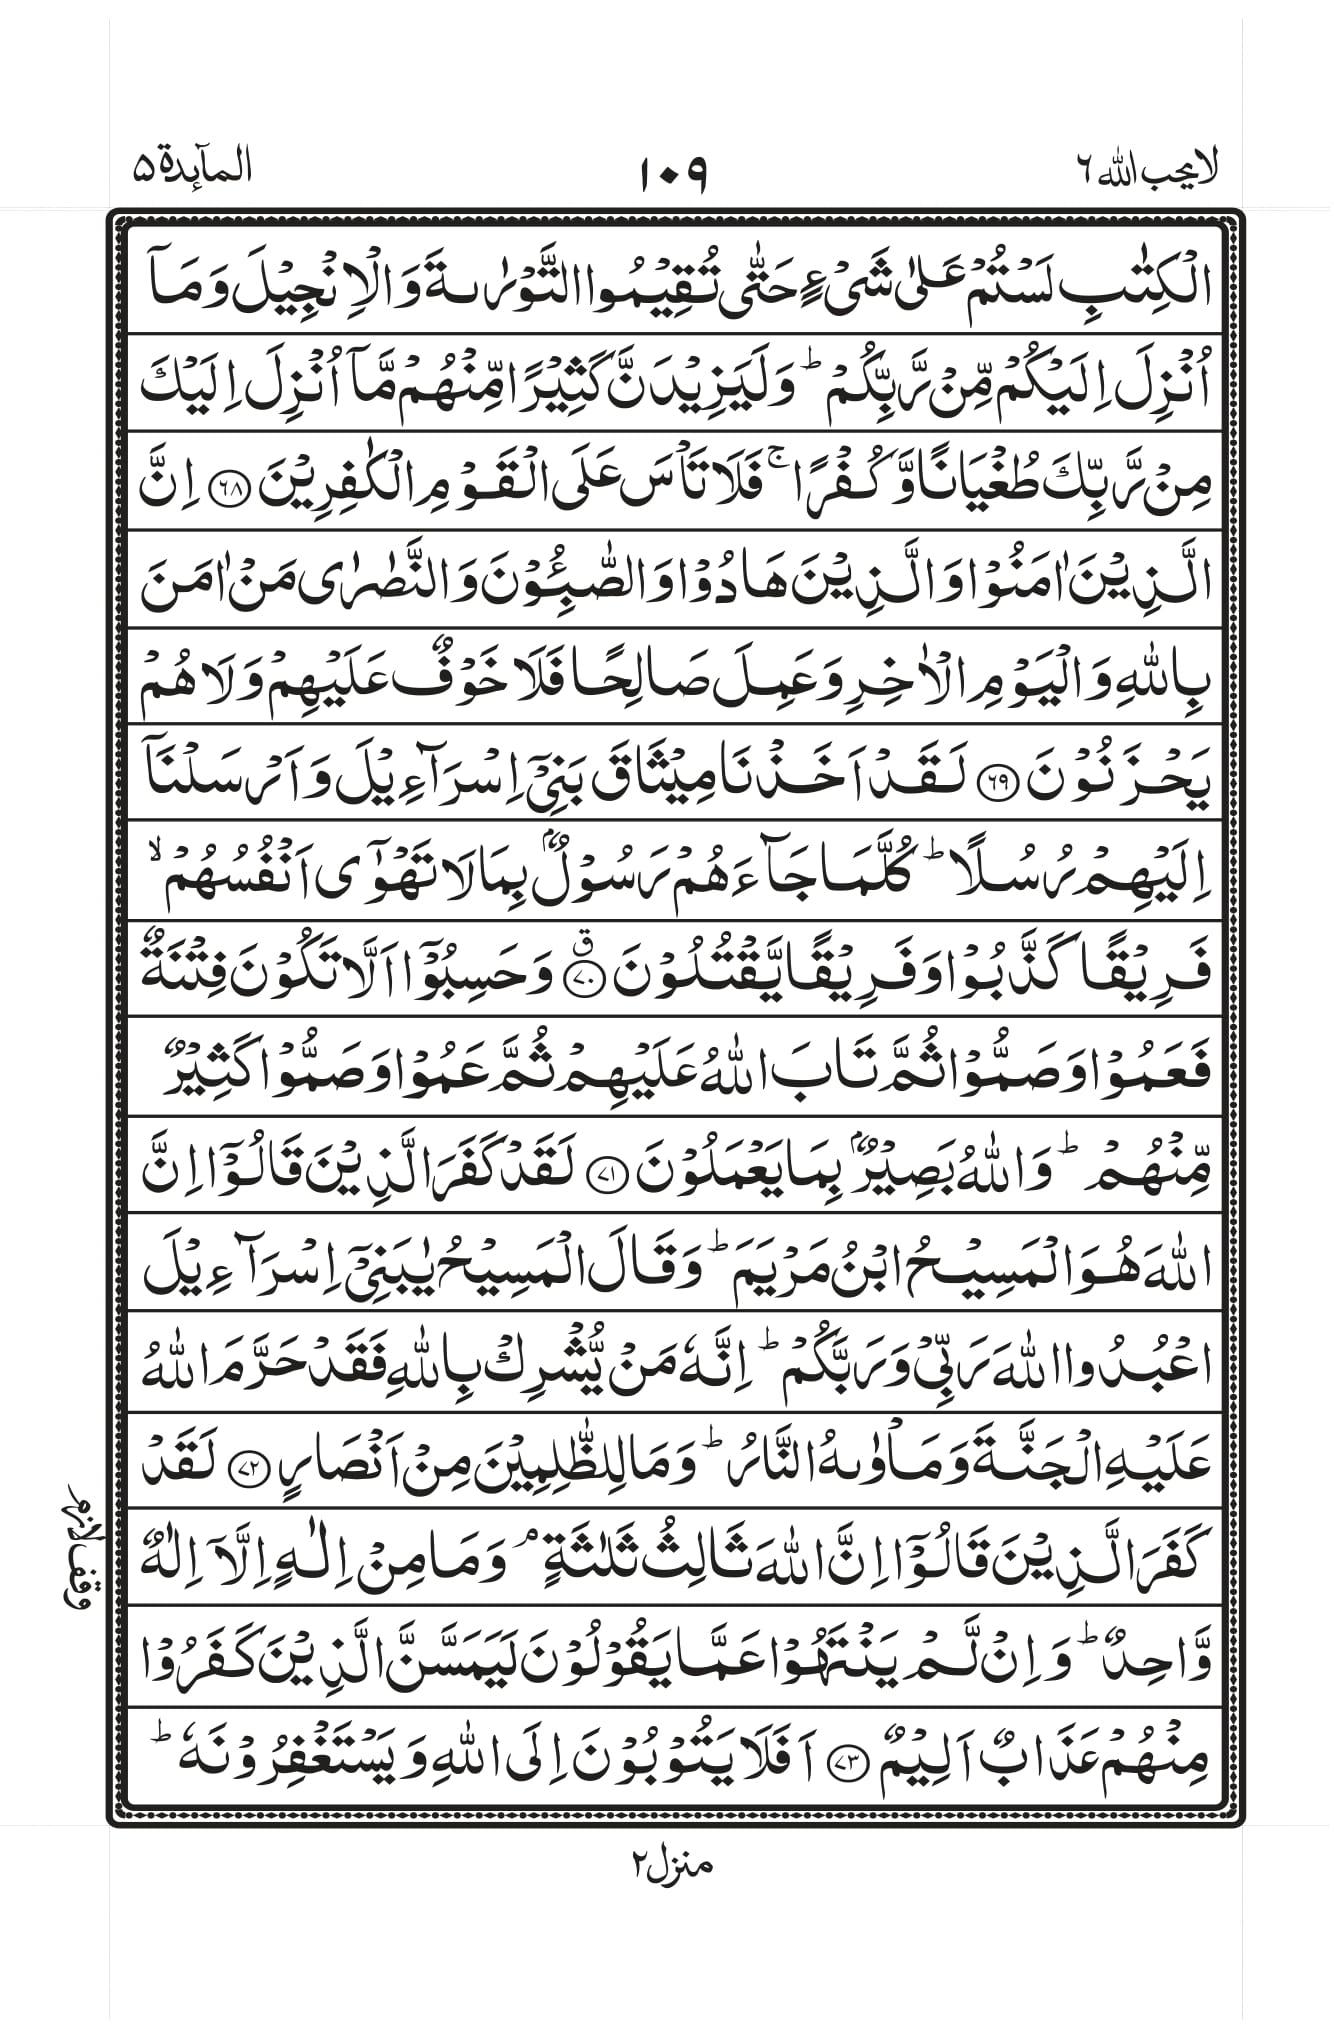 لايحب الله ٦
١٠٩
المآىِٕدة ۵
الْكِتٰبِ لَسْتُمْ عَلٰى شَىْءٍ حَتّٰى تُقِيْمُوا التَّوْرٰىةَ وَالْاِنْجِيْلَ وَمَآ
اُنْزِلَ اِلَيْكُمْ مِّنْ رَّبِّكُمْ ؕ وَلَيَزِيْدَنَّ كَثِيْرًا مِّنْهُمْ مَّآ اُنْزِلَ اِلَيْكَ
مِنْ رَّبِّكَ طُغْيَانًا وَّكُفْرًا ۚ فَلَا تَاْسَ عَلَى الْقَوْمِ الْكٰفِرِيْنَ ﴿٦٨﴾ اِنَّ
الَّذِيْنَ اٰمَنُوْا وَالَّذِيْنَ هَادُوْا وَالصّٰبِـُٔوْنَ وَالنَّصٰرٰى مَنْ اٰمَنَ
بِاللّٰهِ وَالْيَوْمِ الْاٰخِرِ وَعَمِلَ صَالِحًا فَلَا خَوْفٌ عَلَيْهِمْ وَلَا هُمْ
يَحْزَنُوْنَ ﴿٦٩﴾ لَقَدْ اَخَذْنَا مِيْثَاقَ بَنِىْٓ اِسْرَآءِيْلَ وَاَرْسَلْنَآ
اِلَيْهِمْ رُسُلًا ؕ كُلَّمَا جَآءَهُمْ رَسُوْلٌۢ بِمَا لَا تَهْوٰٓى اَنْفُسُهُمْ ۙ
فَرِيْقًا كَذَّبُوْا وَفَرِيْقًا يَّقْتُلُوْنَ ﴿٧٠﴾ ق وَحَسِبُوْٓا اَلَّا تَكُوْنَ فِتْنَةٌ
فَعَمُوْا وَصَمُّوْا ثُمَّ تَابَ اللّٰهُ عَلَيْهِمْ ثُمَّ عَمُوْا وَصَمُّوْا كَثِيْرٌ
مِّنْهُمْ ؕ وَاللّٰهُ بَصِيْرٌۢ بِمَا يَعْمَلُوْنَ ﴿٧١﴾ لَقَدْ كَفَرَ الَّذِيْنَ قَالُوْٓا اِنَّ
اللّٰهَ هُوَ الْمَسِيْحُ ابْنُ مَرْيَمَ ؕ وَقَالَ الْمَسِيْحُ يٰبَنِىْٓ اِسْرَآءِيْلَ
اعْبُدُوا اللّٰهَ رَبِّىْ وَرَبَّكُمْ ؕ اِنَّهٗ مَنْ يُّشْرِكْ بِاللّٰهِ فَقَدْ حَرَّمَ اللّٰهُ
عَلَيْهِ الْجَنَّةَ وَمَاْوٰىهُ النَّارُ ؕ وَمَا لِلظّٰلِمِيْنَ مِنْ اَنْصَارٍ ﴿٧٢﴾ لَقَدْ
كَفَرَ الَّذِيْنَ قَالُوْٓا اِنَّ اللّٰهَ ثَالِثُ ثَلٰثَةٍ ۘ وَمَا مِنْ اِلٰهٍ اِلَّآ اِلٰهٌ
وَّاحِدٌ ؕ وَاِنْ لَّمْ يَنْتَهُوْا عَمَّا يَقُوْلُوْنَ لَيَمَسَّنَّ الَّذِيْنَ كَفَرُوْا
مِنْهُمْ عَذَابٌ اَلِيْمٌ ﴿٧٣﴾ اَفَلَا يَتُوْبُوْنَ اِلَى اللّٰهِ وَيَسْتَغْفِرُوْنَهٗ ؕ
وقف لازم
منزل ٢